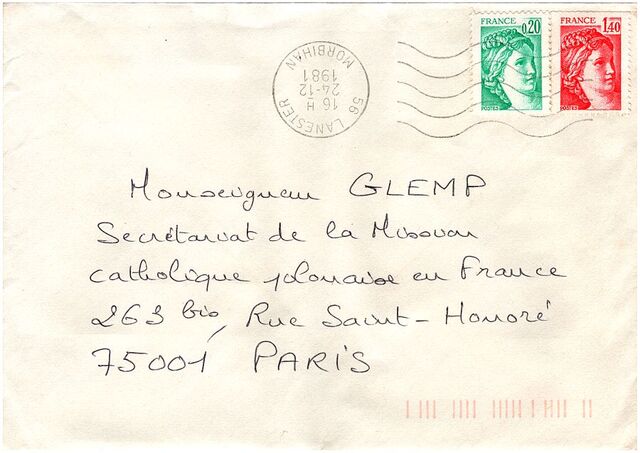 FRANCE
0,20
FRANCE
1,40
56 LANESTER
16 H
24-12
1981
MORBIHAN
Monseigneur GLEMP
Secrétariat de la Mission
catholique polonaise en France
263 bis, Rue Saint-Honoré
75001 PARIS